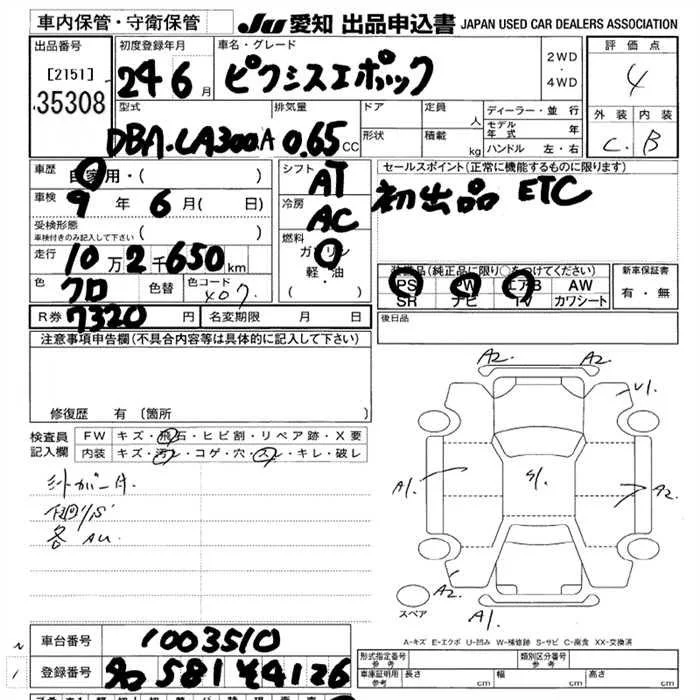 車内保管・守衛保管 JU 愛知 出品申込書 JAPAN USED CAR DEALERS ASSOCIATION
出品番号 初度登録年月 車名・グレード 2WD・4WD 評価点
[2151] 35308 24 6月 ピクシスエポック 4
型式 排気量 ドア 定員 人 ディーラー・並行 外装 内装
DBA-LA300A 0.65CC 形状 積載 kg モデル年式 年 ハンドル 左・右 C. B
車歴 自家用・( ) シフト AT セールスポイント(正常に機能するものに限ります)
車検 9年 6月( 日) 冷房 AC 初出品 ETC
受検形態 車検付きのみ記入して下さい ( ) 燃料 ガソリン 軽・油 ( )
走行 10万2千650km 装備品(純正品に限り○をつけてください) 新車保証書
色 クロ 色替 色コード X07 PS PW エアB AW 有・無
SR ナビ TV カワシート
R券 7320円 名変期限 月 日 後日品
注意事項申告欄(不具合内容等は具体的に記入して下さい)
修復歴 有 〔箇所
検査員記入欄 FW キズ・飛石・ヒビ割・リペア跡・X要
内装 キズ・汚レ・コゲ・穴・スレ・キレ・破レ
シートカバー付
下廻りS
各 AU
A2. A2. U1. A1. S1. A2 A2. A1.
スペア
A-キズ E-エクボ U-凹み W-補修跡 S-サビ C-腐食 XX-交換済
車台番号 1003510
登録番号 581 4126
形式指定番号 参考 類別区分番号 参考
車庫証明用 参考 長さ cm 幅 cm 高さ cm